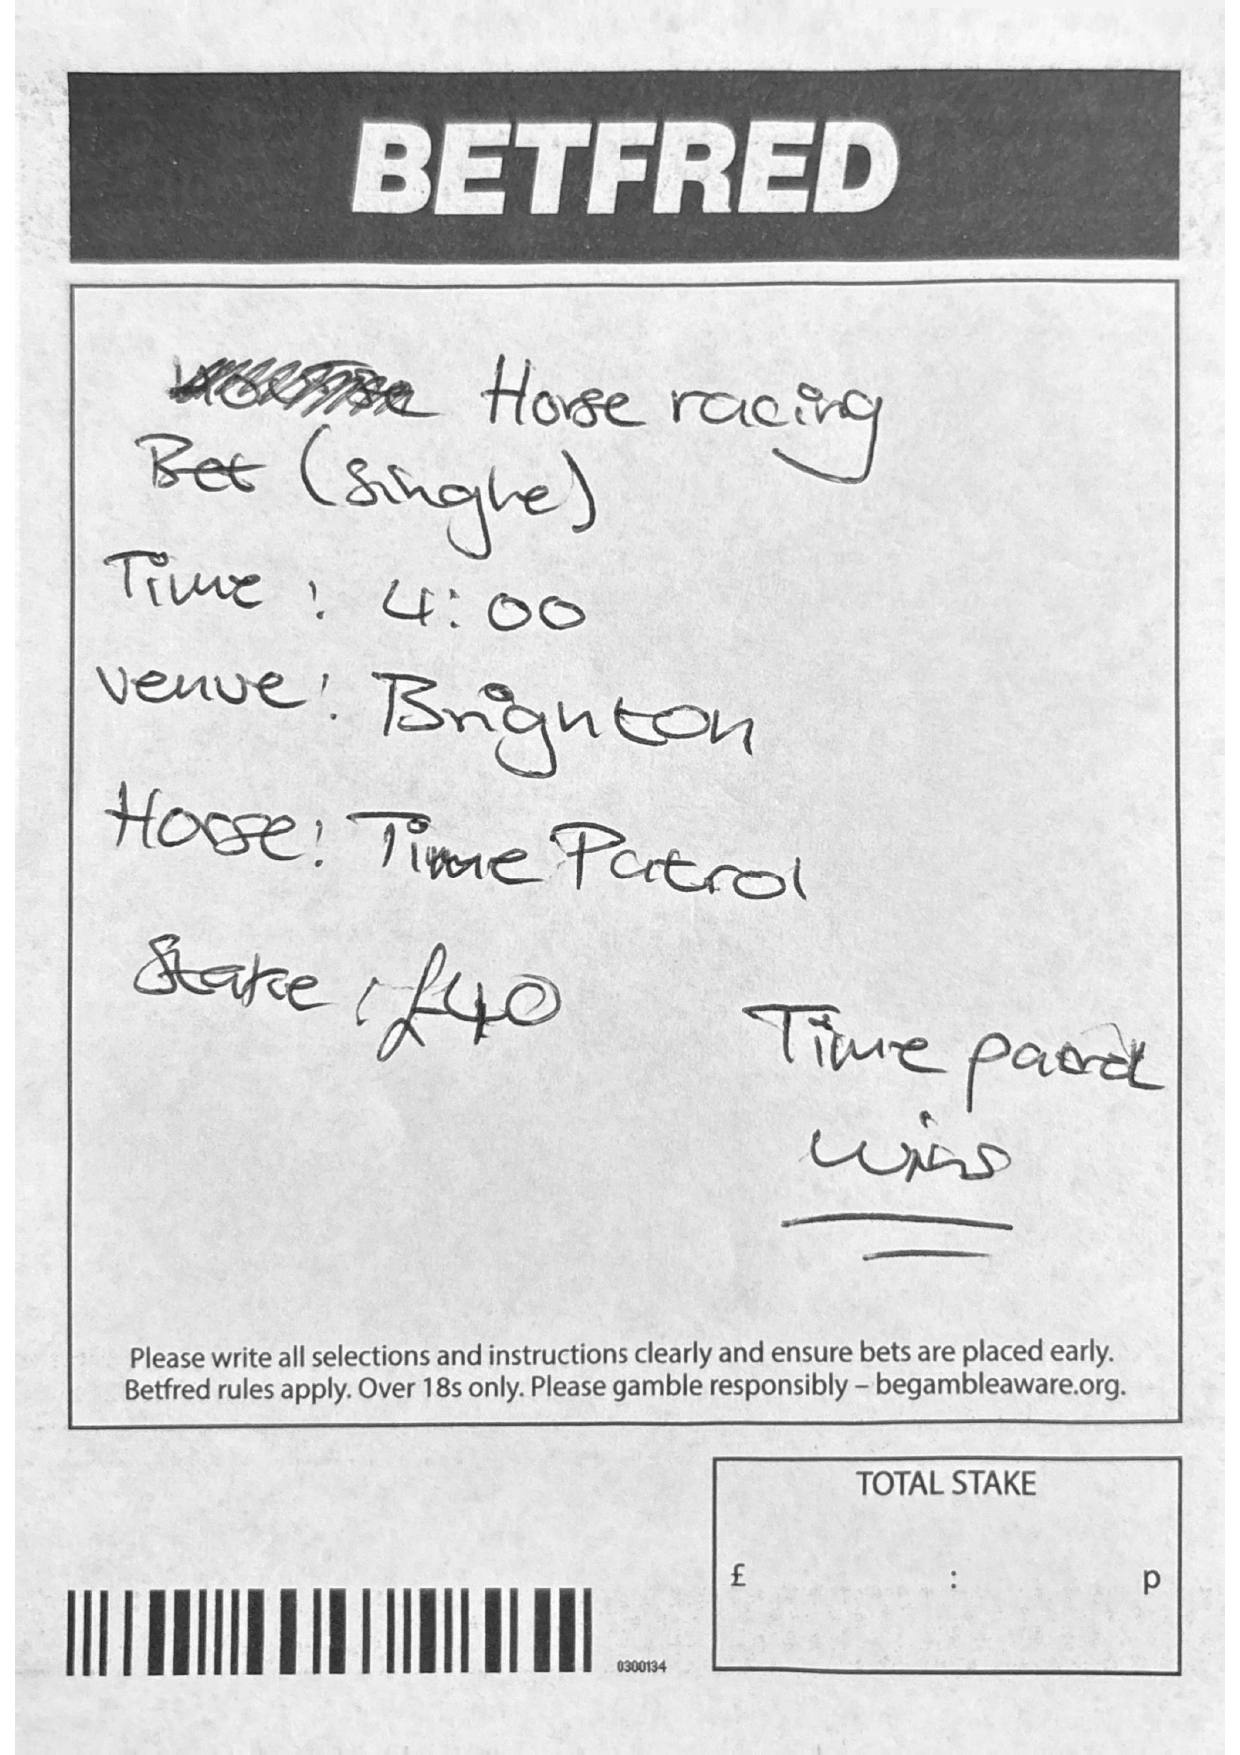 BETFRED
Horse racing
Bet (Single)
Time : 4:00
venue: Brighton
Horse: Time Patrol
Stake : £40
Time patrol
wins
Please write all selections and instructions clearly and ensure bets are placed early.
Betfred rules apply. Over 18s only. Please gamble responsibly – begambleaware.org.
TOTAL STAKE
£ : p
0300134